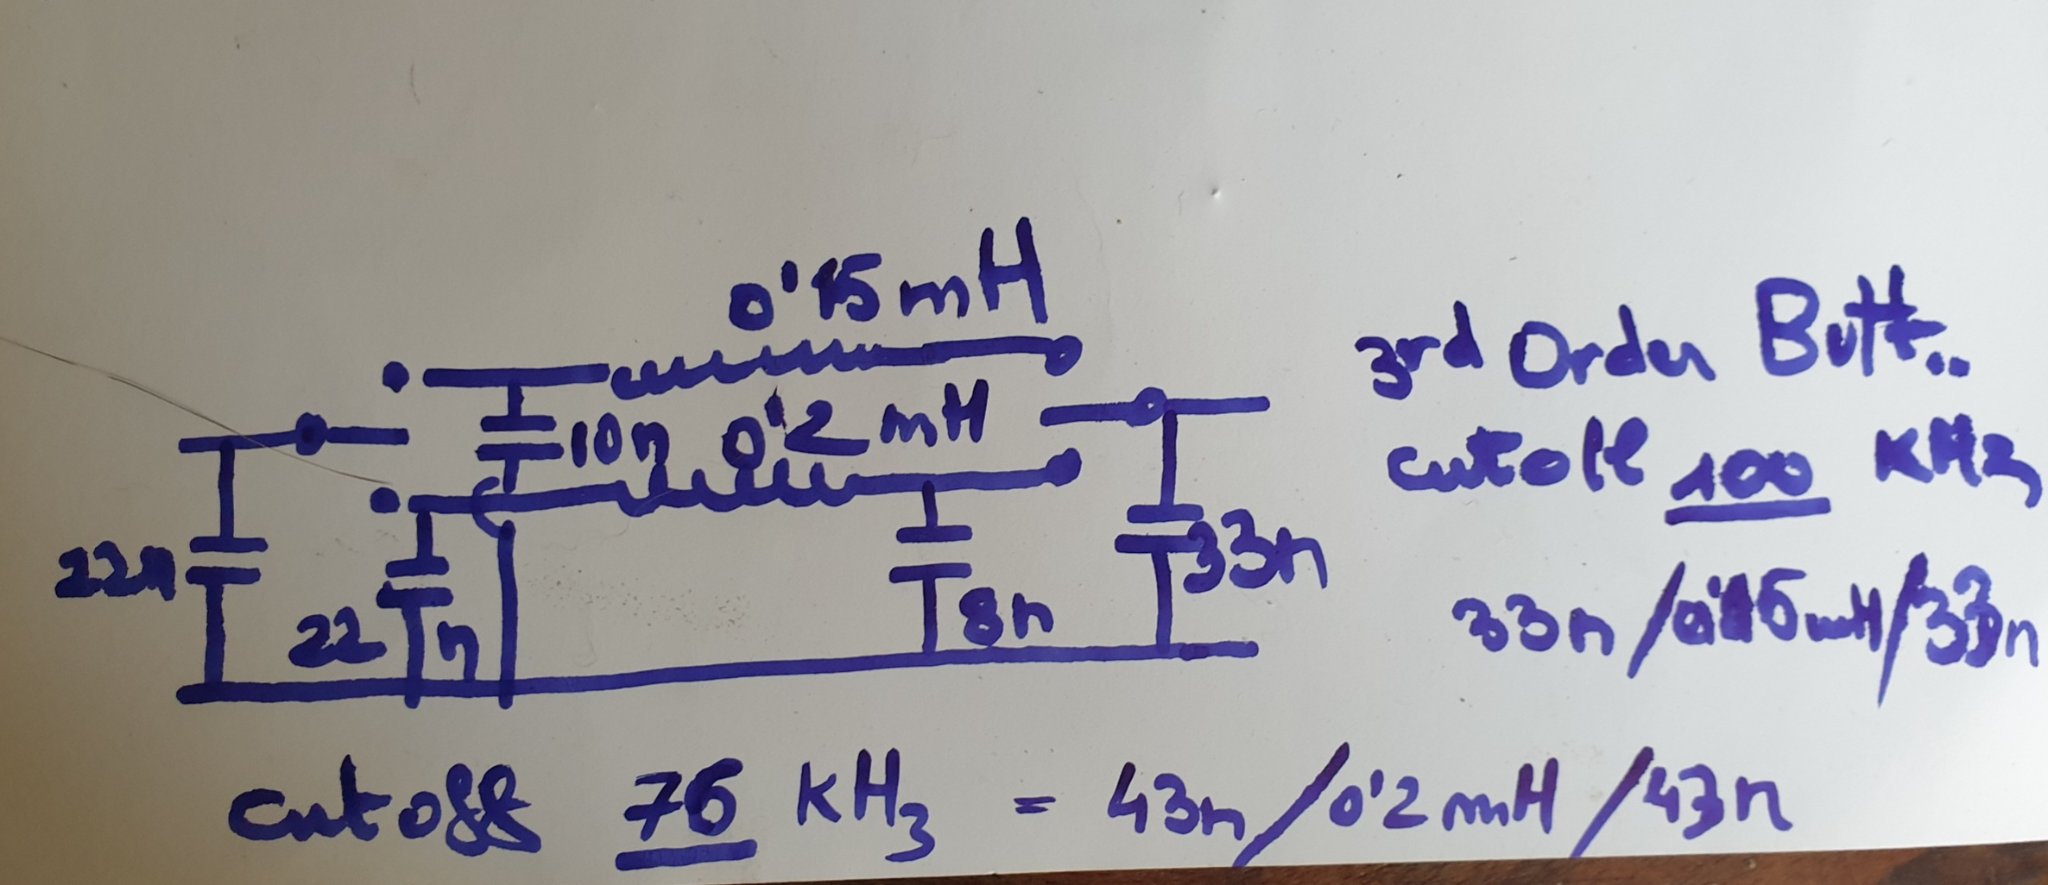 0'15mH
10n 0'2 mH
22n
22 n
8n
33n
3rd Order Butt..
cutoff 100 KHz
33n/0'15mH/33n
cutoff 76 KHz = 43n/0'2mH/43n